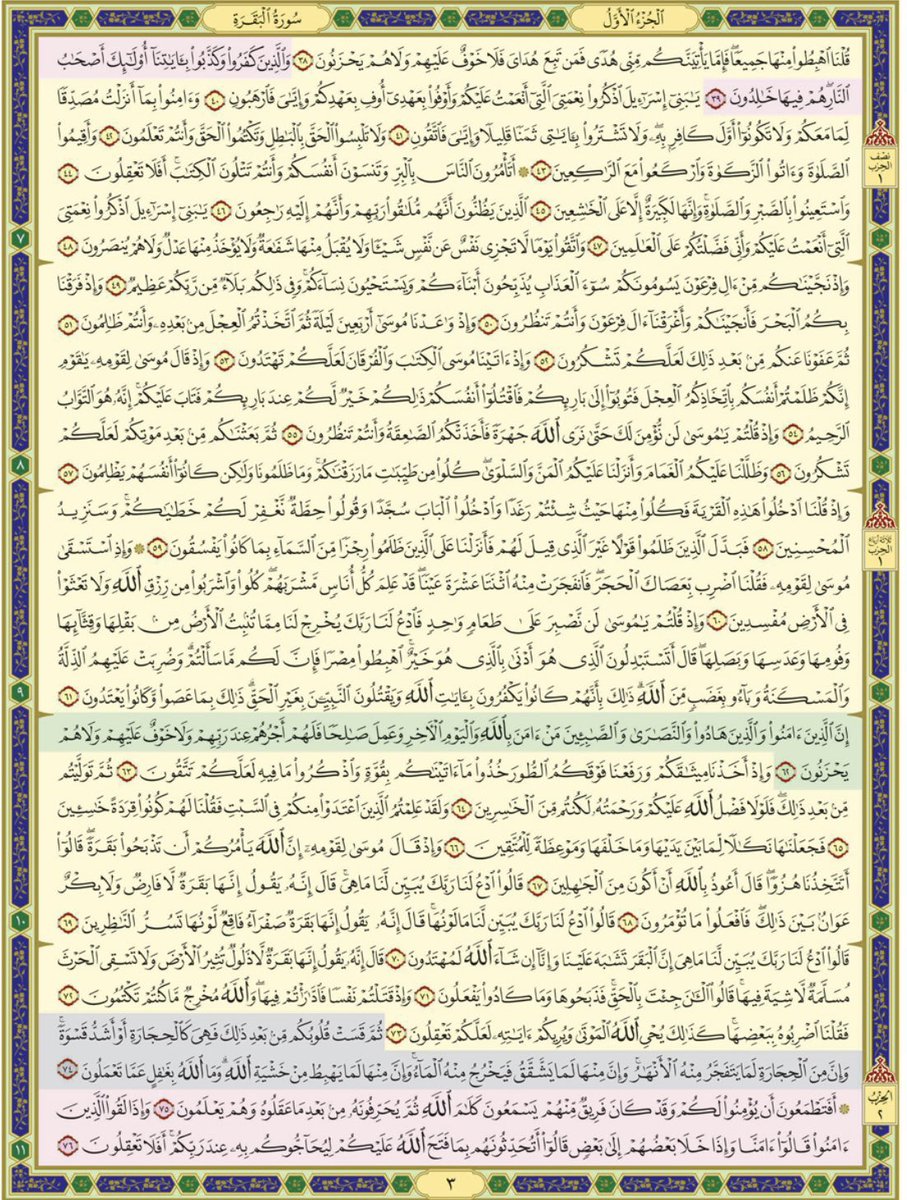 الجزء الأول
سورة البقرة
قُلْنَا ٱهْبِطُوا۟ مِنْهَا جَمِيعًا ۖ فَإِمَّا يَأْتِيَنَّكُم مِّنِّى هُدًى فَمَن تَبِعَ هُدَاىَ فَلَا خَوْفٌ عَلَيْهِمْ وَلَا هُمْ يَحْزَنُونَ ٣٨ وَٱلَّذِينَ كَفَرُوا۟ وَكَذَّبُوا۟ بِـَٔايَـٰتِنَآ أُو۟لَـٰٓئِكَ أَصْحَـٰبُ
ٱلنَّارِ ۖ هُمْ فِيهَا خَـٰلِدُونَ ٣٩ يَـٰبَنِىٓ إِسْرَٰٓءِيلَ ٱذْكُرُوا۟ نِعْمَتِىَ ٱلَّتِىٓ أَنْعَمْتُ عَلَيْكُمْ وَأَوْفُوا۟ بِعَهْدِىٓ أُوفِ بِعَهْدِكُمْ وَإِيَّـٰىَ فَٱرْهَبُونِ ٤٠ وَءَامِنُوا۟ بِمَآ أَنزَلْتُ مُصَدِّقًا
لِّمَا مَعَكُمْ وَلَا تَكُونُوٓا۟ أَوَّلَ كَافِرٍۭ بِهِۦ ۖ وَلَا تَشْتَرُوا۟ بِـَٔايَـٰتِى ثَمَنًا قَلِيلًا وَإِيَّـٰىَ فَٱتَّقُونِ ٤١ وَلَا تَلْبِسُوا۟ ٱلْحَقَّ بِٱلْبَـٰطِلِ وَتَكْتُمُوا۟ ٱلْحَقَّ وَأَنتُمْ تَعْلَمُونَ ٤٢ وَأَقِيمُوا۟
ٱلصَّلَوٰةَ وَءَاتُوا۟ ٱلزَّكَوٰةَ وَٱرْكَعُوا۟ مَعَ ٱلرَّٰكِعِينَ ٤٣ ۞ أَتَأْمُرُونَ ٱلنَّاسَ بِٱلْبِرِّ وَتَنسَوْنَ أَنفُسَكُمْ وَأَنتُمْ تَتْلُونَ ٱلْكِتَـٰبَ ۚ أَفَلَا تَعْقِلُونَ ٤٤
نصف الحزب ١
وَٱسْتَعِينُوا۟ بِٱلصَّبْرِ وَٱلصَّلَوٰةِ ۚ وَإِنَّهَا لَكَبِيرَةٌ إِلَّا عَلَى ٱلْخَـٰشِعِينَ ٤٥ ٱلَّذِينَ يَظُنُّونَ أَنَّهُم مُّلَـٰقُوا۟ رَبِّهِمْ وَأَنَّهُمْ إِلَيْهِ رَٰجِعُونَ ٤٦ يَـٰبَنِىٓ إِسْرَٰٓءِيلَ ٱذْكُرُوا۟ نِعْمَتِىَ
ٱلَّتِىٓ أَنْعَمْتُ عَلَيْكُمْ وَأَنِّى فَضَّلْتُكُمْ عَلَى ٱلْعَـٰلَمِينَ ٤٧ وَٱتَّقُوا۟ يَوْمًا لَّا تَجْزِى نَفْسٌ عَن نَّفْسٍ شَيْـًٔا وَلَا يُقْبَلُ مِنْهَا شَفَـٰعَةٌ وَلَا يُؤْخَذُ مِنْهَا عَدْلٌ وَلَا هُمْ يُنصَرُونَ ٤٨
٧
وَإِذْ نَجَّيْنَـٰكُم مِّنْ ءَالِ فِرْعَوْنَ يَسُومُونَكُمْ سُوٓءَ ٱلْعَذَابِ يُذَبِّحُونَ أَبْنَآءَكُمْ وَيَسْتَحْيُونَ نِسَآءَكُمْ ۚ وَفِى ذَٰلِكُم بَلَآءٌ مِّن رَّبِّكُمْ عَظِيمٌ ٤٩ وَإِذْ فَرَقْنَا
بِكُمُ ٱلْبَحْرَ فَأَنجَيْنَـٰكُمْ وَأَغْرَقْنَآ ءَالَ فِرْعَوْنَ وَأَنتُمْ تَنظُرُونَ ٥٠ وَإِذْ وَٰعَدْنَا مُوسَىٰٓ أَرْبَعِينَ لَيْلَةً ثُمَّ ٱتَّخَذْتُمُ ٱلْعِجْلَ مِنۢ بَعْدِهِۦ وَأَنتُمْ ظَـٰلِمُونَ ٥١
ثُمَّ عَفَوْنَا عَنكُم مِّنۢ بَعْدِ ذَٰلِكَ لَعَلَّكُمْ تَشْكُرُونَ ٥٢ وَإِذْ ءَاتَيْنَا مُوسَى ٱلْكِتَـٰبَ وَٱلْفُرْقَانَ لَعَلَّكُمْ تَهْتَدُونَ ٥٣ وَإِذْ قَالَ مُوسَىٰ لِقَوْمِهِۦ يَـٰقَوْمِ
إِنَّكُمْ ظَلَمْتُمْ أَنفُسَكُم بِٱتِّخَاذِكُمُ ٱلْعِجْلَ فَتُوبُوٓا۟ إِلَىٰ بَارِئِكُمْ فَٱقْتُلُوٓا۟ أَنفُسَكُمْ ذَٰلِكُمْ خَيْرٌ لَّكُمْ عِندَ بَارِئِكُمْ فَتَابَ عَلَيْكُمْ ۚ إِنَّهُۥ هُوَ ٱلتَّوَّابُ
ٱلرَّحِيمُ ٥٤ وَإِذْ قُلْتُمْ يَـٰمُوسَىٰ لَن نُّؤْمِنَ لَكَ حَتَّىٰ نَرَى ٱللَّهَ جَهْرَةً فَأَخَذَتْكُمُ ٱلصَّـٰعِقَةُ وَأَنتُمْ تَنظُرُونَ ٥٥ ثُمَّ بَعَثْنَـٰكُم مِّنۢ بَعْدِ مَوْتِكُمْ لَعَلَّكُمْ
تَشْكُرُونَ ٥٦ وَظَلَّلْنَا عَلَيْكُمُ ٱلْغَمَامَ وَأَنزَلْنَا عَلَيْكُمُ ٱلْمَنَّ وَٱلسَّلْوَىٰ ۖ كُلُوا۟ مِن طَيِّبَـٰتِ مَا رَزَقْنَـٰكُمْ ۖ وَمَا ظَلَمُونَا وَلَـٰكِن كَانُوٓا۟ أَنفُسَهُمْ يَظْلِمُونَ ٥٧
٨
وَإِذْ قُلْنَا ٱدْخُلُوا۟ هَـٰذِهِ ٱلْقَرْيَةَ فَكُلُوا۟ مِنْهَا حَيْثُ شِئْتُمْ رَغَدًا وَٱدْخُلُوا۟ ٱلْبَابَ سُجَّدًا وَقُولُوا۟ حِطَّةٌ نَّغْفِرْ لَكُمْ خَطَـٰيَـٰكُمْ ۚ وَسَنَزِيدُ
ٱلْمُحْسِنِينَ ٥٨ فَبَدَّلَ ٱلَّذِينَ ظَلَمُوا۟ قَوْلًا غَيْرَ ٱلَّذِى قِيلَ لَهُمْ فَأَنزَلْنَا عَلَى ٱلَّذِينَ ظَلَمُوا۟ رِجْزًا مِّنَ ٱلسَّمَآءِ بِمَا كَانُوا۟ يَفْسُقُونَ ٥٩ ۞ وَإِذِ ٱسْتَسْقَىٰ
ثلاثة أرباع الحزب ١
مُوسَىٰ لِقَوْمِهِۦ فَقُلْنَا ٱضْرِب بِّعَصَاكَ ٱلْحَجَرَ ۖ فَٱنفَجَرَتْ مِنْهُ ٱثْنَتَا عَشْرَةَ عَيْنًا ۖ قَدْ عَلِمَ كُلُّ أُنَاسٍ مَّشْرَبَهُمْ ۖ كُلُوا۟ وَٱشْرَبُوا۟ مِن رِّزْقِ ٱللَّهِ وَلَا تَعْثَوْا۟
فِى ٱلْأَرْضِ مُفْسِدِينَ ٦٠ وَإِذْ قُلْتُمْ يَـٰمُوسَىٰ لَن نَّصْبِرَ عَلَىٰ طَعَامٍ وَٰحِدٍ فَٱدْعُ لَنَا رَبَّكَ يُخْرِجْ لَنَا مِمَّا تُنۢبِتُ ٱلْأَرْضُ مِنۢ بَقْلِهَا وَقِثَّآئِهَا
وَفُومِهَا وَعَدَسِهَا وَبَصَلِهَا ۖ قَالَ أَتَسْتَبْدِلُونَ ٱلَّذِى هُوَ أَدْنَىٰ بِٱلَّذِى هُوَ خَيْرٌ ۚ ٱهْبِطُوا۟ مِصْرًا فَإِنَّ لَكُم مَّا سَأَلْتُمْ ۗ وَضُرِبَتْ عَلَيْهِمُ ٱلذِّلَّةُ
وَٱلْمَسْكَنَةُ وَبَآءُو بِغَضَبٍ مِّنَ ٱللَّهِ ۗ ذَٰلِكَ بِأَنَّهُمْ كَانُوا۟ يَكْفُرُونَ بِـَٔايَـٰتِ ٱللَّهِ وَيَقْتُلُونَ ٱلنَّبِيِّـۧنَ بِغَيْرِ ٱلْحَقِّ ۗ ذَٰلِكَ بِمَا عَصَوا۟ وَّكَانُوا۟ يَعْتَدُونَ ٦١
٩
إِنَّ ٱلَّذِينَ ءَامَنُوا۟ وَٱلَّذِينَ هَادُوا۟ وَٱلنَّصَـٰرَىٰ وَٱلصَّـٰبِـِٔينَ مَنْ ءَامَنَ بِٱللَّهِ وَٱلْيَوْمِ ٱلْـَٔاخِرِ وَعَمِلَ صَـٰلِحًا فَلَهُمْ أَجْرُهُمْ عِندَ رَبِّهِمْ وَلَا خَوْفٌ عَلَيْهِمْ وَلَا هُمْ
يَحْزَنُونَ ٦٢ وَإِذْ أَخَذْنَا مِيثَـٰقَكُمْ وَرَفَعْنَا فَوْقَكُمُ ٱلطُّورَ خُذُوا۟ مَآ ءَاتَيْنَـٰكُم بِقُوَّةٍ وَٱذْكُرُوا۟ مَا فِيهِ لَعَلَّكُمْ تَتَّقُونَ ٦٣ ثُمَّ تَوَلَّيْتُم
مِّنۢ بَعْدِ ذَٰلِكَ ۖ فَلَوْلَا فَضْلُ ٱللَّهِ عَلَيْكُمْ وَرَحْمَتُهُۥ لَكُنتُم مِّنَ ٱلْخَـٰسِرِينَ ٦٤ وَلَقَدْ عَلِمْتُمُ ٱلَّذِينَ ٱعْتَدَوْا۟ مِنكُمْ فِى ٱلسَّبْتِ فَقُلْنَا لَهُمْ كُونُوا۟ قِرَدَةً خَـٰسِـِٔينَ
٦٥ فَجَعَلْنَـٰهَا نَكَـٰلًا لِّمَا بَيْنَ يَدَيْهَا وَمَا خَلْفَهَا وَمَوْعِظَةً لِّلْمُتَّقِينَ ٦٦ وَإِذْ قَالَ مُوسَىٰ لِقَوْمِهِۦٓ إِنَّ ٱللَّهَ يَأْمُرُكُمْ أَن تَذْبَحُوا۟ بَقَرَةً ۖ قَالُوٓا۟
أَتَتَّخِذُنَا هُزُوًا ۖ قَالَ أَعُوذُ بِٱللَّهِ أَنْ أَكُونَ مِنَ ٱلْجَـٰهِلِينَ ٦٧ قَالُوا۟ ٱدْعُ لَنَا رَبَّكَ يُبَيِّن لَّنَا مَا هِىَ ۚ قَالَ إِنَّهُۥ يَقُولُ إِنَّهَا بَقَرَةٌ لَّا فَارِضٌ وَلَا بِكْرٌ
عَوَانٌۢ بَيْنَ ذَٰلِكَ ۖ فَٱفْعَلُوا۟ مَا تُؤْمَرُونَ ٦٨ قَالُوا۟ ٱدْعُ لَنَا رَبَّكَ يُبَيِّن لَّنَا مَا لَوْنُهَا ۚ قَالَ إِنَّهُۥ يَقُولُ إِنَّهَا بَقَرَةٌ صَفْرَآءُ فَاقِعٌ لَّوْنُهَا تَسُرُّ ٱلنَّـٰظِرِينَ ٦٩
١٠
قَالُوا۟ ٱدْعُ لَنَا رَبَّكَ يُبَيِّن لَّنَا مَا هِىَ إِنَّ ٱلْبَقَرَ تَشَـٰبَهَ عَلَيْنَا وَإِنَّآ إِن شَآءَ ٱللَّهُ لَمُهْتَدُونَ ٧٠ قَالَ إِنَّهُۥ يَقُولُ إِنَّهَا بَقَرَةٌ لَّا ذَلُولٌ تُثِيرُ ٱلْأَرْضَ وَلَا تَسْقِى ٱلْحَرْثَ
مُسَلَّمَةٌ لَّا شِيَةَ فِيهَا ۚ قَالُوا۟ ٱلْـَٔـٰنَ جِئْتَ بِٱلْحَقِّ ۚ فَذَبَحُوهَا وَمَا كَادُوا۟ يَفْعَلُونَ ٧١ وَإِذْ قَتَلْتُمْ نَفْسًا فَٱدَّٰرَْٰٔتُمْ فِيهَا ۖ وَٱللَّهُ مُخْرِجٌ مَّا كُنتُمْ تَكْتُمُونَ ٧٢
فَقُلْنَا ٱضْرِبُوهُ بِبَعْضِهَا ۚ كَذَٰلِكَ يُحْىِ ٱللَّهُ ٱلْمَوْتَىٰ وَيُرِيكُمْ ءَايَـٰتِهِۦ لَعَلَّكُمْ تَعْقِلُونَ ٧٣ ثُمَّ قَسَتْ قُلُوبُكُم مِّنۢ بَعْدِ ذَٰلِكَ فَهِىَ كَٱلْحِجَارَةِ أَوْ أَشَدُّ قَسْوَةً ۚ
وَإِنَّ مِنَ ٱلْحِجَارَةِ لَمَا يَتَفَجَّرُ مِنْهُ ٱلْأَنْهَـٰرُ ۚ وَإِنَّ مِنْهَا لَمَا يَشَّقَّقُ فَيَخْرُجُ مِنْهُ ٱلْمَآءُ ۚ وَإِنَّ مِنْهَا لَمَا يَهْبِطُ مِنْ خَشْيَةِ ٱللَّهِ ۗ وَمَا ٱللَّهُ بِغَـٰفِلٍ عَمَّا تَعْمَلُونَ ٧٤
۞ أَفَتَطْمَعُونَ أَن يُؤْمِنُوا۟ لَكُمْ وَقَدْ كَانَ فَرِيقٌ مِّنْهُمْ يَسْمَعُونَ كَلَـٰمَ ٱللَّهِ ثُمَّ يُحَرِّفُونَهُۥ مِنۢ بَعْدِ مَا عَقَلُوهُ وَهُمْ يَعْلَمُونَ ٧٥ وَإِذَا لَقُوا۟ ٱلَّذِينَ
الحزب ٢
ءَامَنُوا۟ قَالُوٓا۟ ءَامَنَّا وَإِذَا خَلَا بَعْضُهُمْ إِلَىٰ بَعْضٍ قَالُوٓا۟ أَتُحَدِّثُونَهُم بِمَا فَتَحَ ٱللَّهُ عَلَيْكُمْ لِيُحَآجُّوكُم بِهِۦ عِندَ رَبِّكُمْ ۚ أَفَلَا تَعْقِلُونَ ٧٦
١١
٣